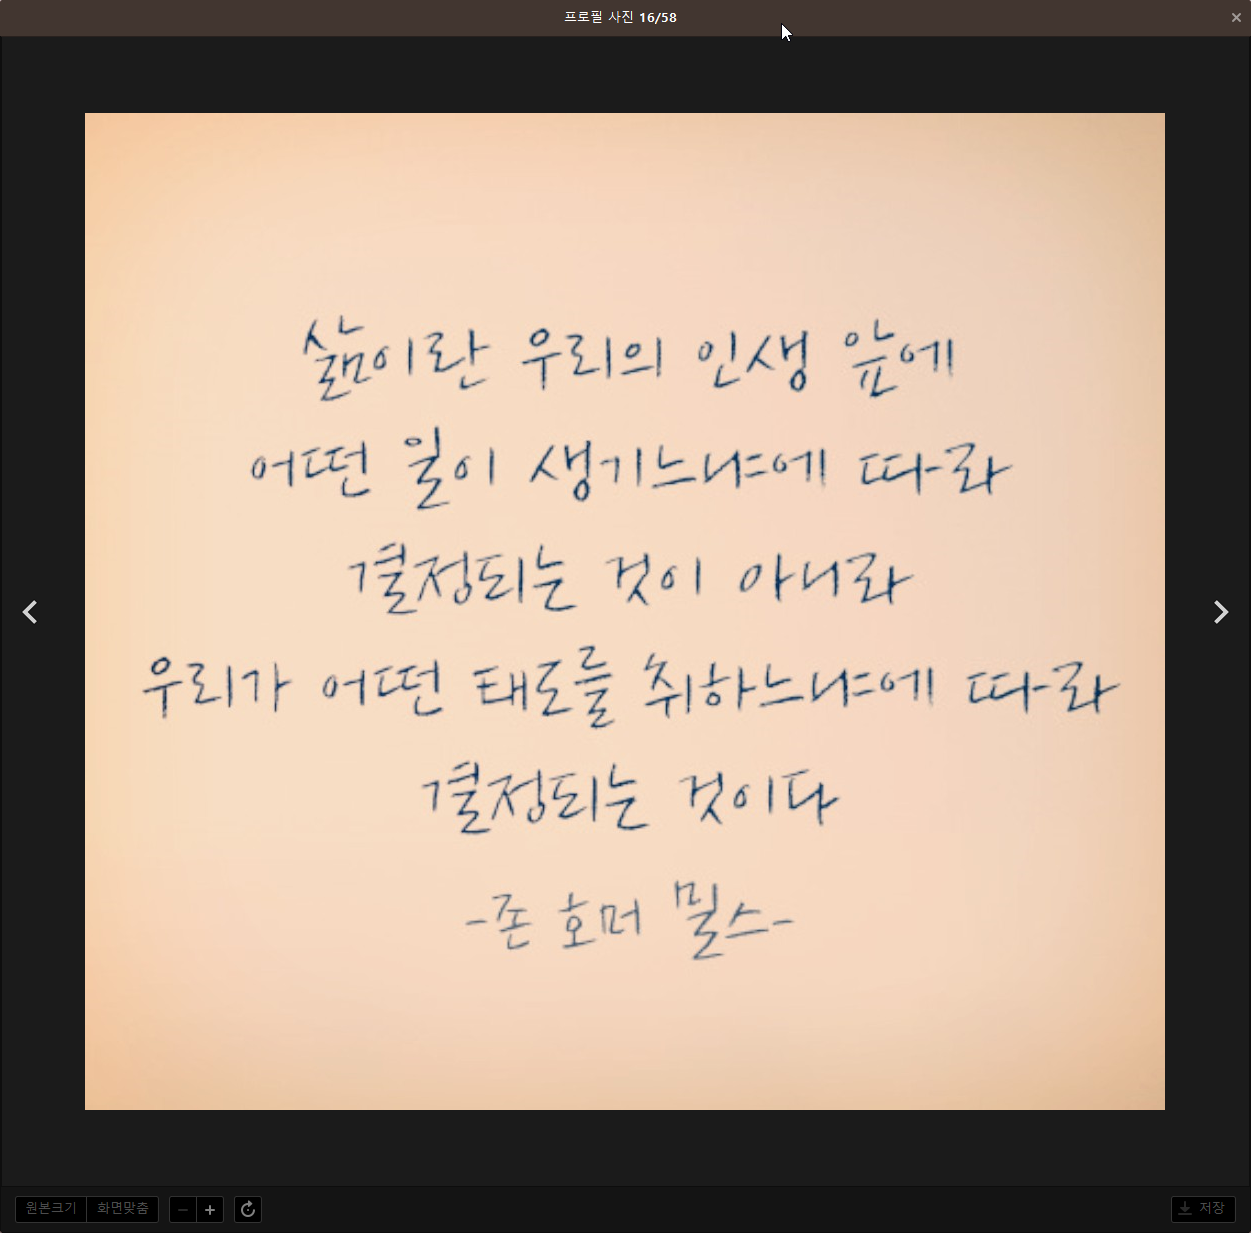 프로필 사진 16/58
삶이란 우리의 인생 앞에
어떤 일이 생기느냐에 따라
결정되는 것이 아니라
우리가 어떤 태도를 취하느냐에 따라
결정되는 것이다
-존 호머 밀스-
원본크기 화면맞춤 저장